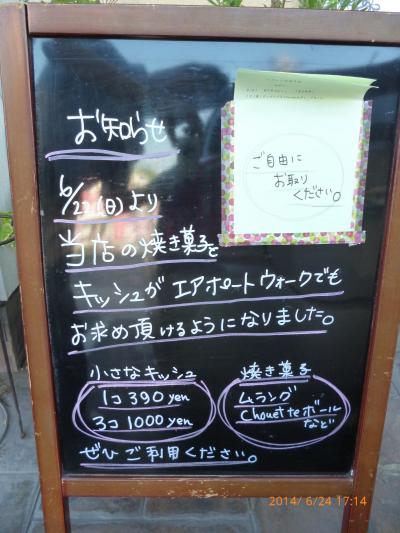 お知らせ
ご自由に
お取り
ください。
6/22(日)より
当店の焼き菓子を
キッシュがエアポートウォークでも
お求め頂けるようになりました。
小さなキッシュ
1コ 390yen
3コ 1000yen
焼き菓子
ムラング
Chouetteボール
など
ぜひご利用ください。
2014/ 6/24 17:14